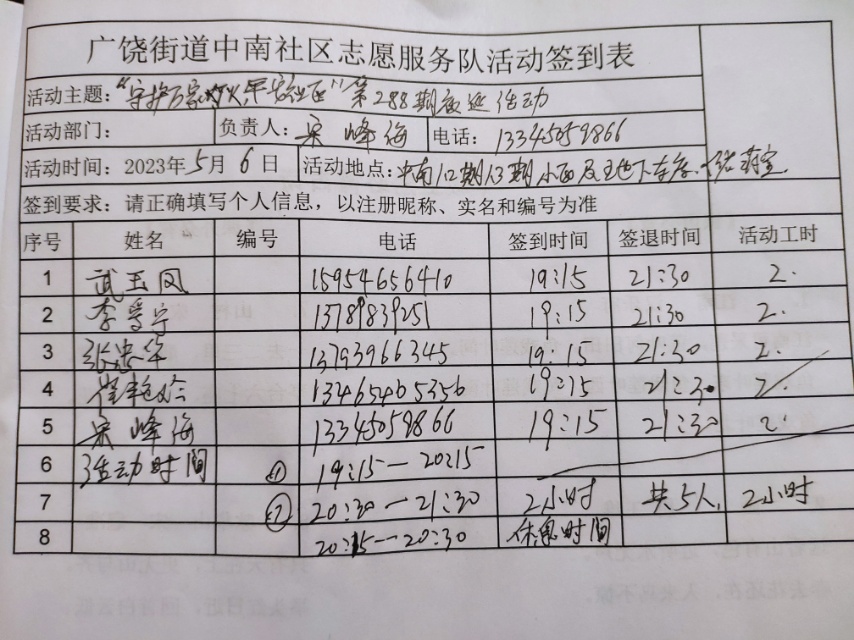 广饶街道中南社区志愿服务队活动签到表
活动主题：“守护万家灯火，平安社区”第288期夜巡活动
活动部门： 负责人：宋峰海 电话：13345059866
活动时间：2023年5月6日 活动地点：中南1.2期1.3期小区及地下车库
签到要求：请正确填写个人信息，以注册昵称、实名和编号为准
序号 姓名 编号 电话 签到时间 签退时间 活动工时
1 武玉凤 15954656410 19:15 21:30 2.
2 李秀宁 13789839251 19:15 21:30 2.
3 张忠华 13793966345 19:15 21:30 2.
4 崔艳玲 13465465356 19:15 21:30 2.
5 宋峰海 13345059866 19:15 21:30 2.
6 活动时间 ① 19:15—20:15
7 ② 20:30—21:30 2小时 共5人, 2小时
8 20:15—20:30 休息时间